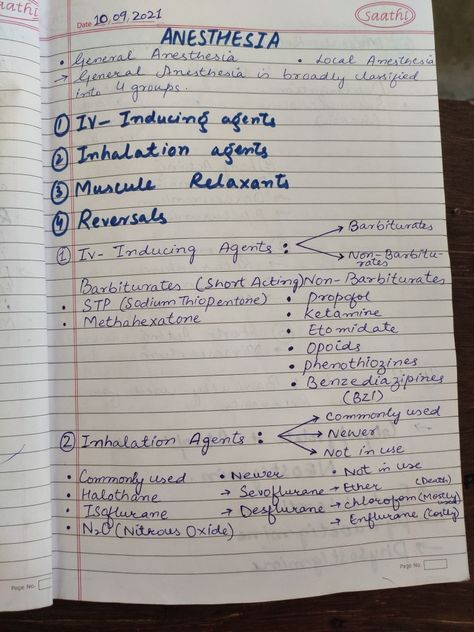 Date 10.09.2021
Saathi
ANESTHESIA
• General Anesthesia • Local Anesthesia
→ General Anesthesia is broadly classified
into 4 groups.
① IV-Inducing agents
② Inhalation agents
③ Muscule Relaxants
④ Reversals
① IV-Inducing Agents : → Barbiturates
→ Non-Barbitu-
rates
Barbiturates (Short Acting) Non-Barbiturates
• STP (Sodium Thiopentone) • Propofol
• Methahexatone • Ketamine
• Etomidate
• Opoids
• Phenothiozines
• Benzediazipines
(BZI)
② Inhalation Agents : → Commonly used
→ Newer
→ Not in use
• Commonly used • Newer • Not in use
• Halothane → Sevoflurane → Ether (Death)
• Isoflurane → Desflurane → chlorofom (Mostly
• N₂O (Nitrous Oxide) → Enflurane (Costly)
Page No.
Page No.